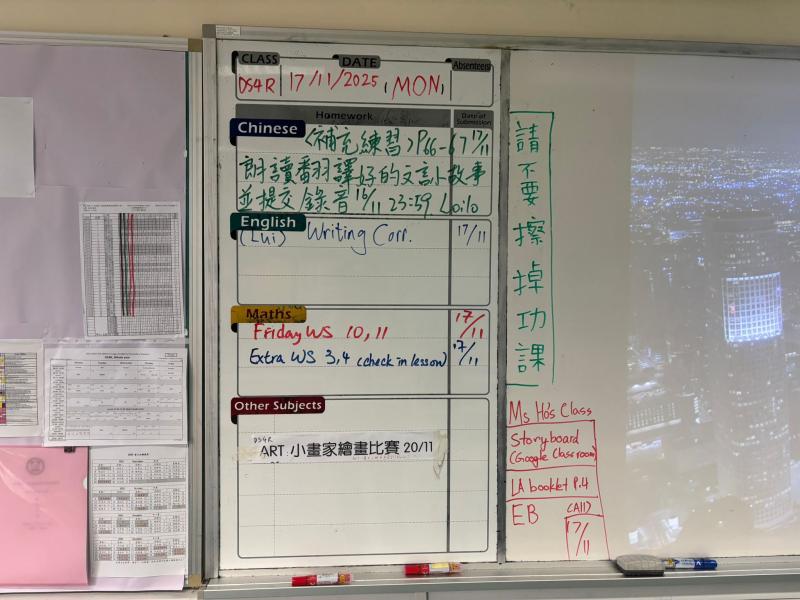 CLASS
DATE
Absentees
DS4R
17/11/2025, MON,
Homework
Date of Submission
Chinese
〈補充練習〉P66-67 17/11
朗讀翻譯好的文言小故事
並提交錄音 23:59 Loilo
English
(Lui) Writing Corr. 17/11
Maths
Friday WS 10, 11 17/11
Extra WS 3,4 (check in lesson) 17/11
Other Subjects
DS4R
ART 小畫家繪畫比賽 20/11
請不要擦掉功課
Ms Ho's Class
Storyboard
(Google Classroom)
LA booklet P.4
EB (All)
17/11